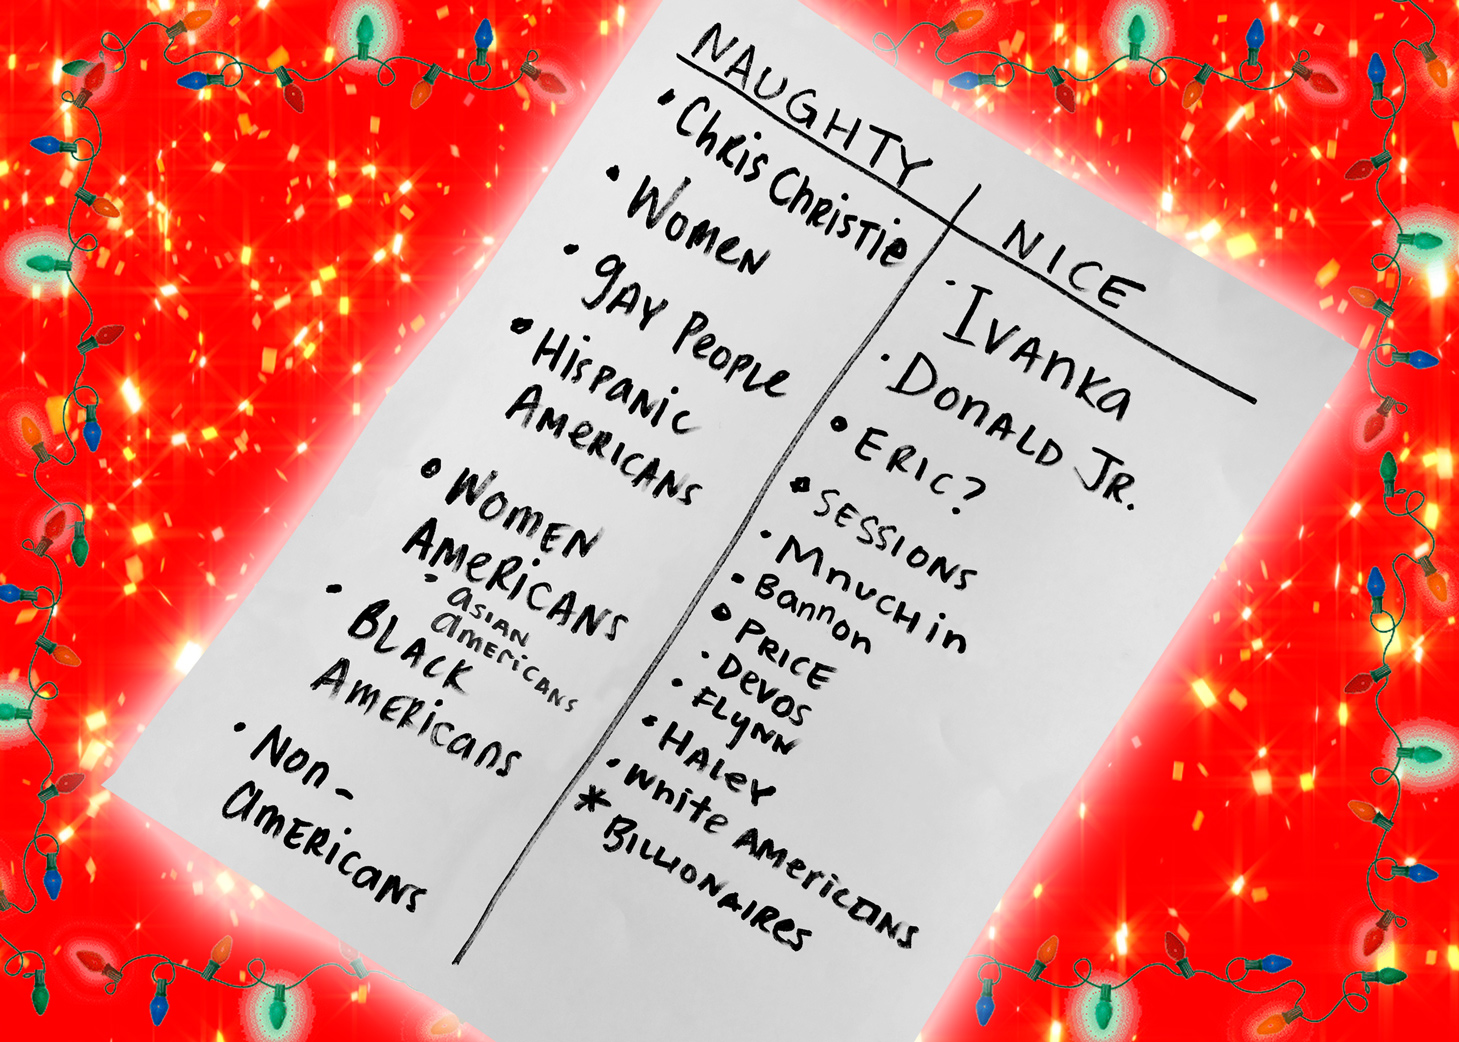 NAUGHTY
• Chris Christie
• Women
• gay People
• Hispanic
Americans
• Women
Americans
- asian
americans
• Black
Americans
• Non-
americans
NICE
• Ivanka
• Donald Jr.
• Eric?
• Sessions
• Mnuchin
• Bannon
• Price
• Devos
• Flynn
• Haley
• White Americans
* Billionaires